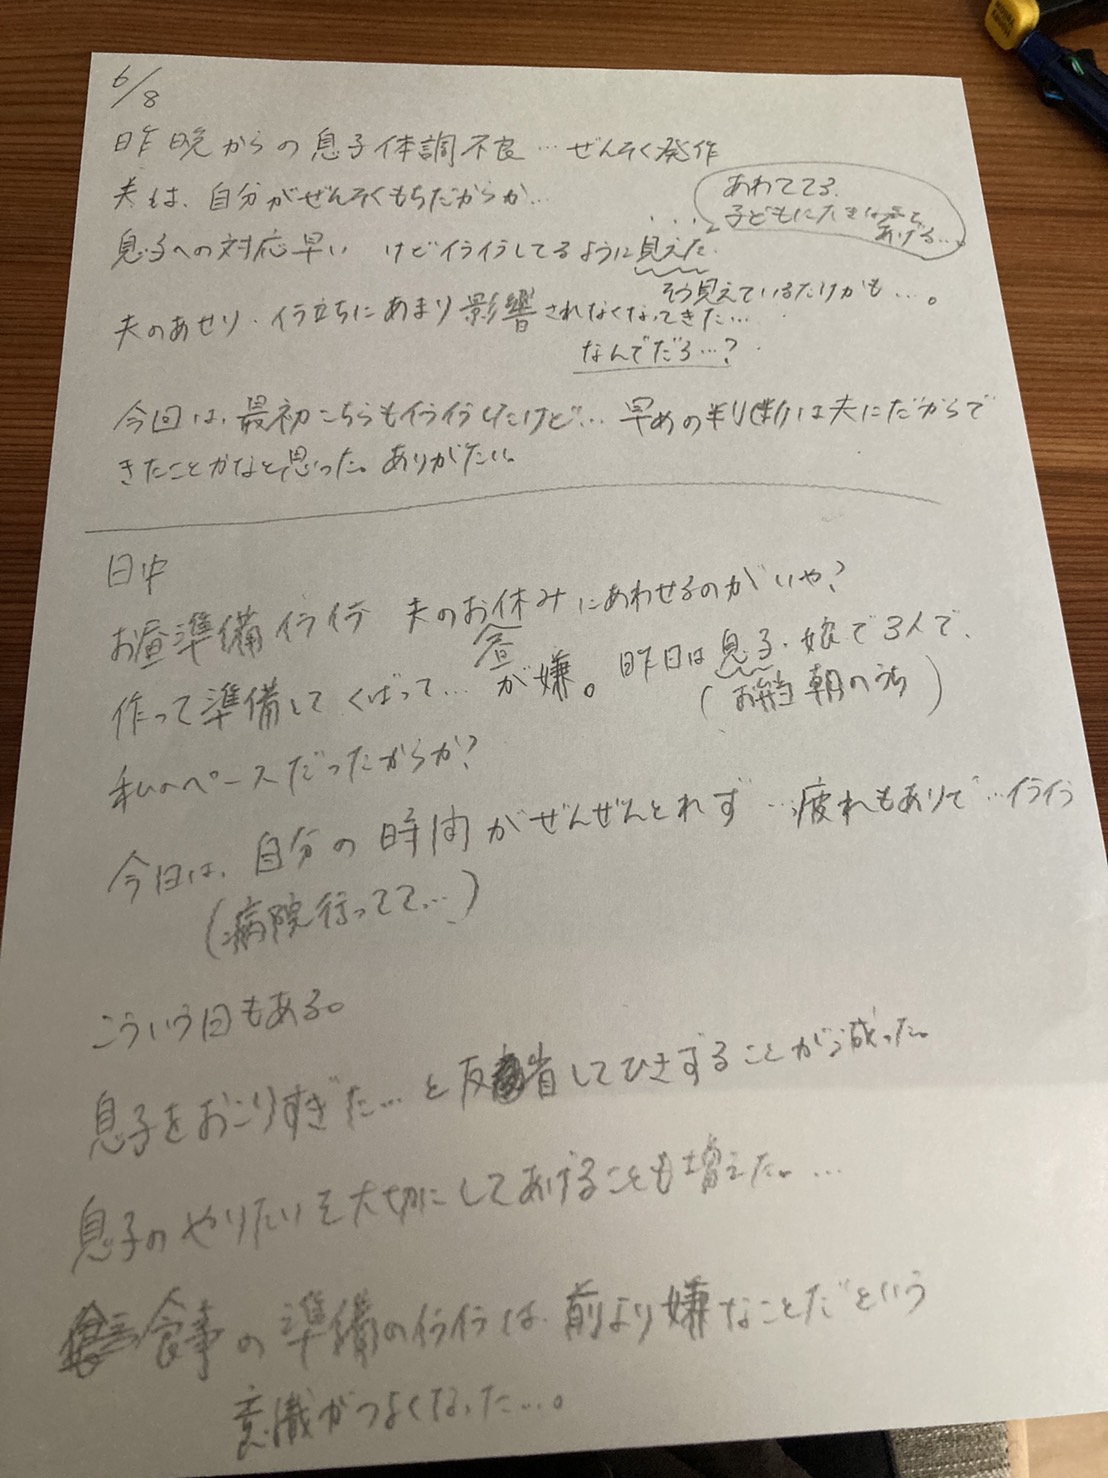 6/8
昨晩からの息子体調不良…ぜんそく発作
夫は、自分がぜんそくもちだからか…
あわててる、
子どもに大きな声を
あげる…
息子への対応早い けどイライラしてるように見えた
そう見えているだけかも…。
夫のあせり・イラ立ちにあまり影響されなくなってきた…
なんでだろ…?
今回は、最初こちらもイライラしたけど… 早めの判断は夫にだからで
きたことかなと思った。ありがたい。
日中
お昼準備イライラ 夫のお昼休みにあわせるのがいや?
作って準備して くばって… が嫌。昨日は息子・娘で3人で、
(お弁当 朝のうち)
私のペースだったからか?
今日は、自分の時間がぜんぜんとれず…疲れもありで…イライラ
(病院行ってて…)
こういう日もある。
息子をおこりすぎた…と反省してひきずることが減った。
息子のやりたいを大切にしてあげることも増えた。…
食事の準備のイライラは、前より嫌なことだという
意識がつよくなった…。